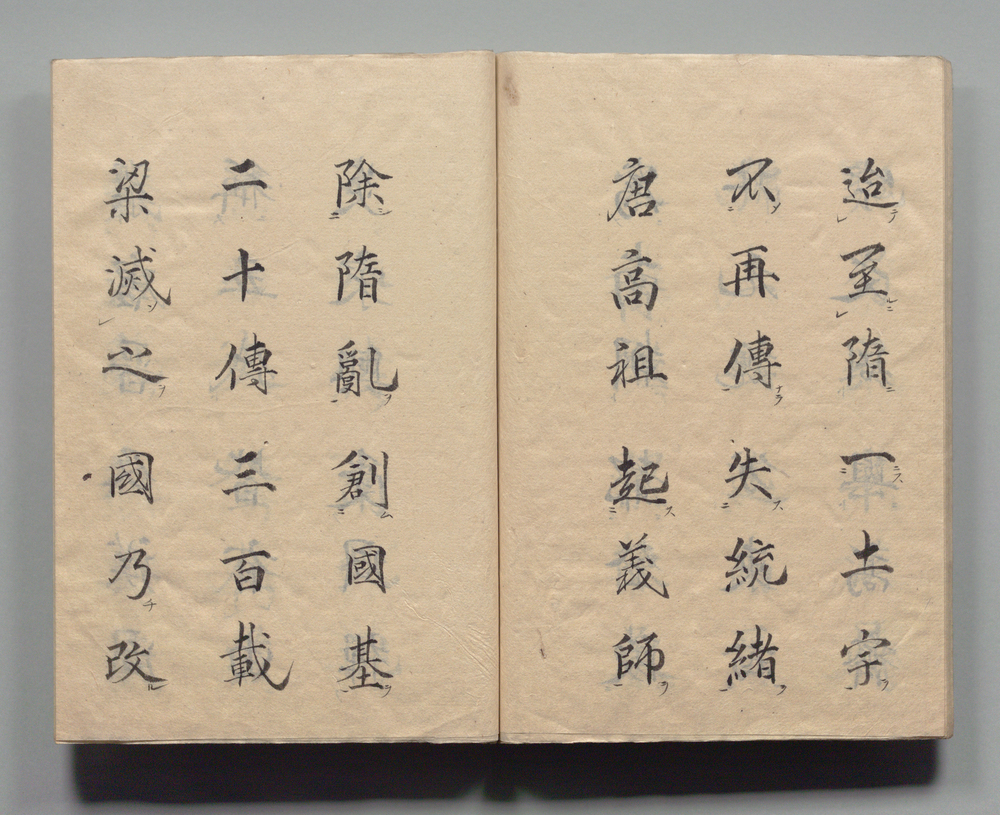 迨至隋一土宇
不再傳失統緒
唐高祖起義師
除隋亂創國基
二十傳三百載
梁滅之國乃改